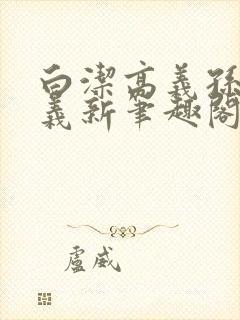 白潔高義孫
義新筆趣閣
盧威